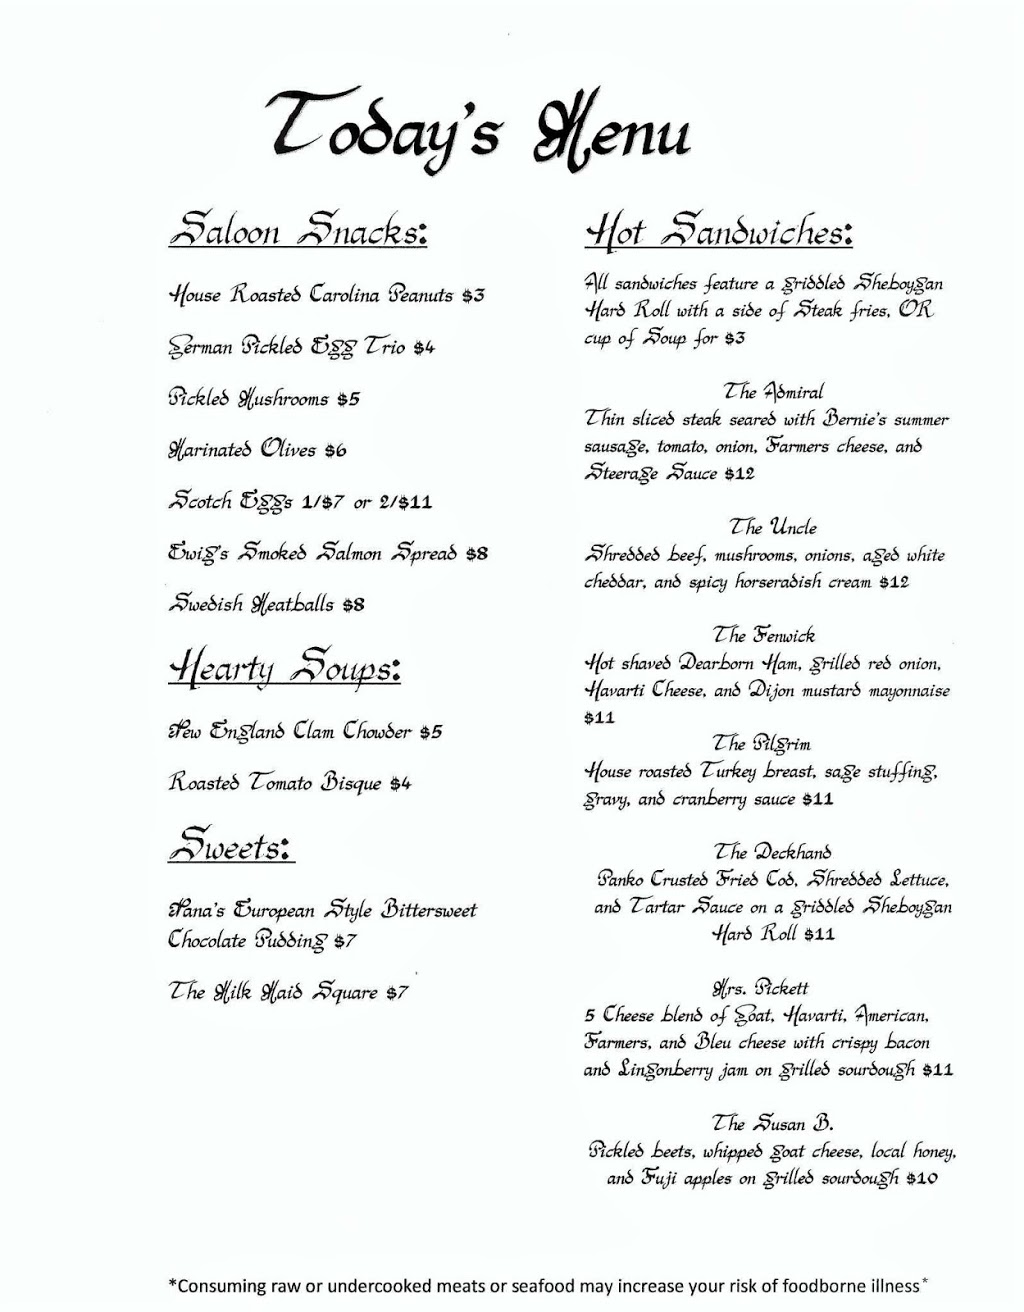 Today's Menu
Saloon Snacks:
House Roasted Carolina Peanuts $3
German Pickled Egg Trio $4
Pickled Mushrooms $5
Marinated Olives $6
Scotch Eggs 1/$7 or 2/$11
Ewig's Smoked Salmon Spread $8
Swedish Meatballs $8
Hearty Soups:
New England Clam Chowder $5
Roasted Tomato Bisque $4
Sweets:
Nana's European Style Bittersweet
Chocolate Pudding $7
The Milk Maid Square $7
Hot Sandwiches:
All sandwiches feature a griddled Sheboygan
Hard Roll with a side of Steak fries, OR
cup of Soup for $3
The Admiral
Thin sliced steak seared with Bernie's summer
sausage, tomato, onion, Farmers cheese, and
Steerage Sauce $12
The Uncle
Shredded beef, mushrooms, onions, aged white
cheddar, and spicy horseradish cream $12
The Fenwick
Hot shaved Dearborn Ham, grilled red onion,
Havarti Cheese, and Dijon mustard mayonnaise
$11
The Pilgrim
House roasted Turkey breast, sage stuffing,
gravy, and cranberry sauce $11
The Deckhand
Panko Crusted Fried Cod, Shredded Lettuce,
and Tartar Sauce on a griddled Sheboygan
Hard Roll $11
Mrs. Pickett
5 Cheese blend of Goat, Havarti, American,
Farmers, and Bleu cheese with crispy bacon
and Lingonberry jam on grilled sourdough $11
The Susan B.
Pickled beets, whipped goat cheese, local honey,
and Fuji apples on grilled sourdough $10
*Consuming raw or undercooked meats or seafood may increase your risk of foodborne illness*